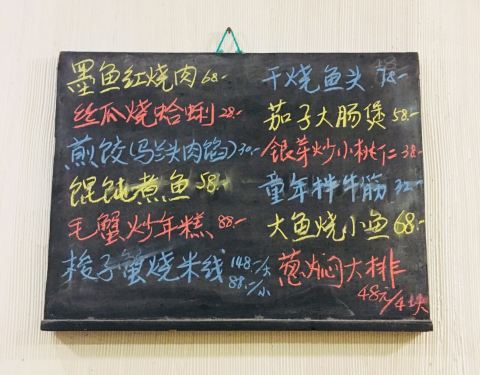 墨鱼红烧肉 68.-
丝瓜烧蛤蜊 28.-
煎饺(马兰头肉馅) 30.-
馄饨煮鱼 58.-
毛蟹炒年糕 88.-
梭子蟹烧米线 148.-/大
88.-/小
干烧鱼头 78.-
茄子大肠煲 58.-
银芽炒小桃仁 38.-
童年拌牛筋 32.-
大鱼烧小鱼 68.-
葱焖大排
48元/4块